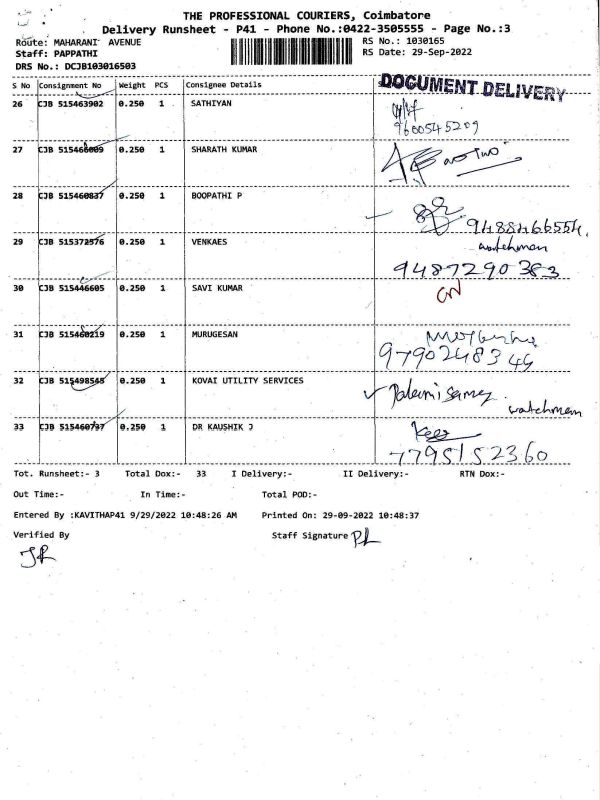 THE PROFESSIONAL COURIERS, Coimbatore
Delivery Runsheet - P41 - Phone No.:0422-3505555 - Page No.:3
Route: MAHARANI AVENUE RS No.: 1030165
Staff: PAPPATHI RS Date: 29-Sep-2022
DRS No.: DCJB103016503
DOCUMENT DELIVERY
S No Consignment No Weight PCS Consignee Details
26 CJB 515463902 0.250 1 SATHIYAN
9600545209
27 CJB 515466009 0.250 1 SHARATH KUMAR
28 CJB 515460837 0.250 1 BOOPATHI P
9488466554.
29 CJB 515372576 0.250 1 VENKAES watchman
9487290383
30 CJB 515446605 0.250 1 SAVI KUMAR
31 CJB 515460219 0.250 1 MURUGESAN
9790248344
32 CJB 515498545 0.250 1 KOVAI UTILITY SERVICES Palanisamy
watchman
33 CJB 515460737 0.250 1 DR KAUSHIK J
7795152360
Tot. Runsheet:- 3 Total Dox:- 33 I Delivery:- II Delivery:- RTN Dox:-
Out Time:- In Time:- Total POD:-
Entered By :KAVITHAP41 9/29/2022 10:48:26 AM Printed On: 29-09-2022 10:48:37
Verified By Staff Signature